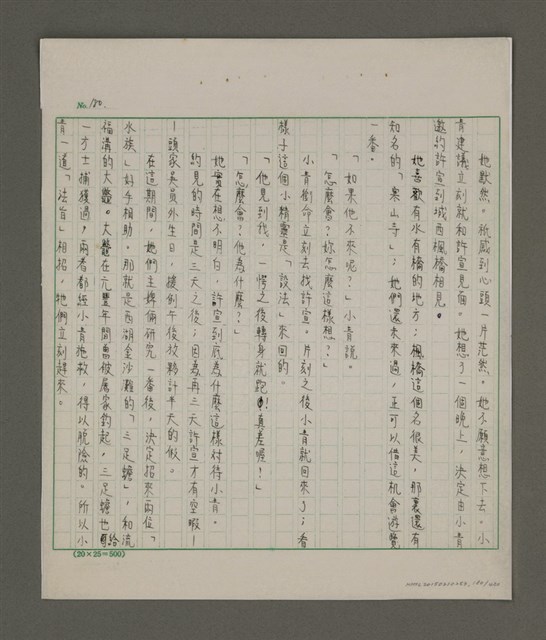 No. 180.
她默然。祇感到心頭一片茫然。她不願意想下去。小
青建議立刻就和許宣見個面。她想了一個晚上，決定由小青
邀約許宣到城西楓橋相見。
她喜歡有水有橋的地方；楓橋這個名很美，那裏還有
知名的「寒山寺」；她們還未來過，正可以借這機會遊覽
一番。
「如果他不來呢？」小青說。
「怎麼會？妳怎麼這樣想？」
小青銜命立刻去找許宣。片刻之後小青就回來了；看
樣子這個小精靈是「設法」來回的。
「他見到我，一愕之後轉身就跑！真差喔！」
「怎麼會？他為什麼？」
她實在想不明白，許宣到底為什麼這樣付待小青。
約見的時間是三天之後；因為再三天許宣才有空暇—
—頭家吳員外生日，援例午後放夥計半天的假。
在這期間，她們主婢倆研究一番後，決定招來兩位「
水族」好手相助。那就是西湖金沙灘的「三足蟾」，和流
福溝的大鼈。大鼈在元豐年間曾被屠家釣起，三足蟾也給
一方士捕獲過，兩者都經小青拖救，得以脫險的。所以小
青一道「法旨」相招，牠們立刻趕來。
(20×25=500)